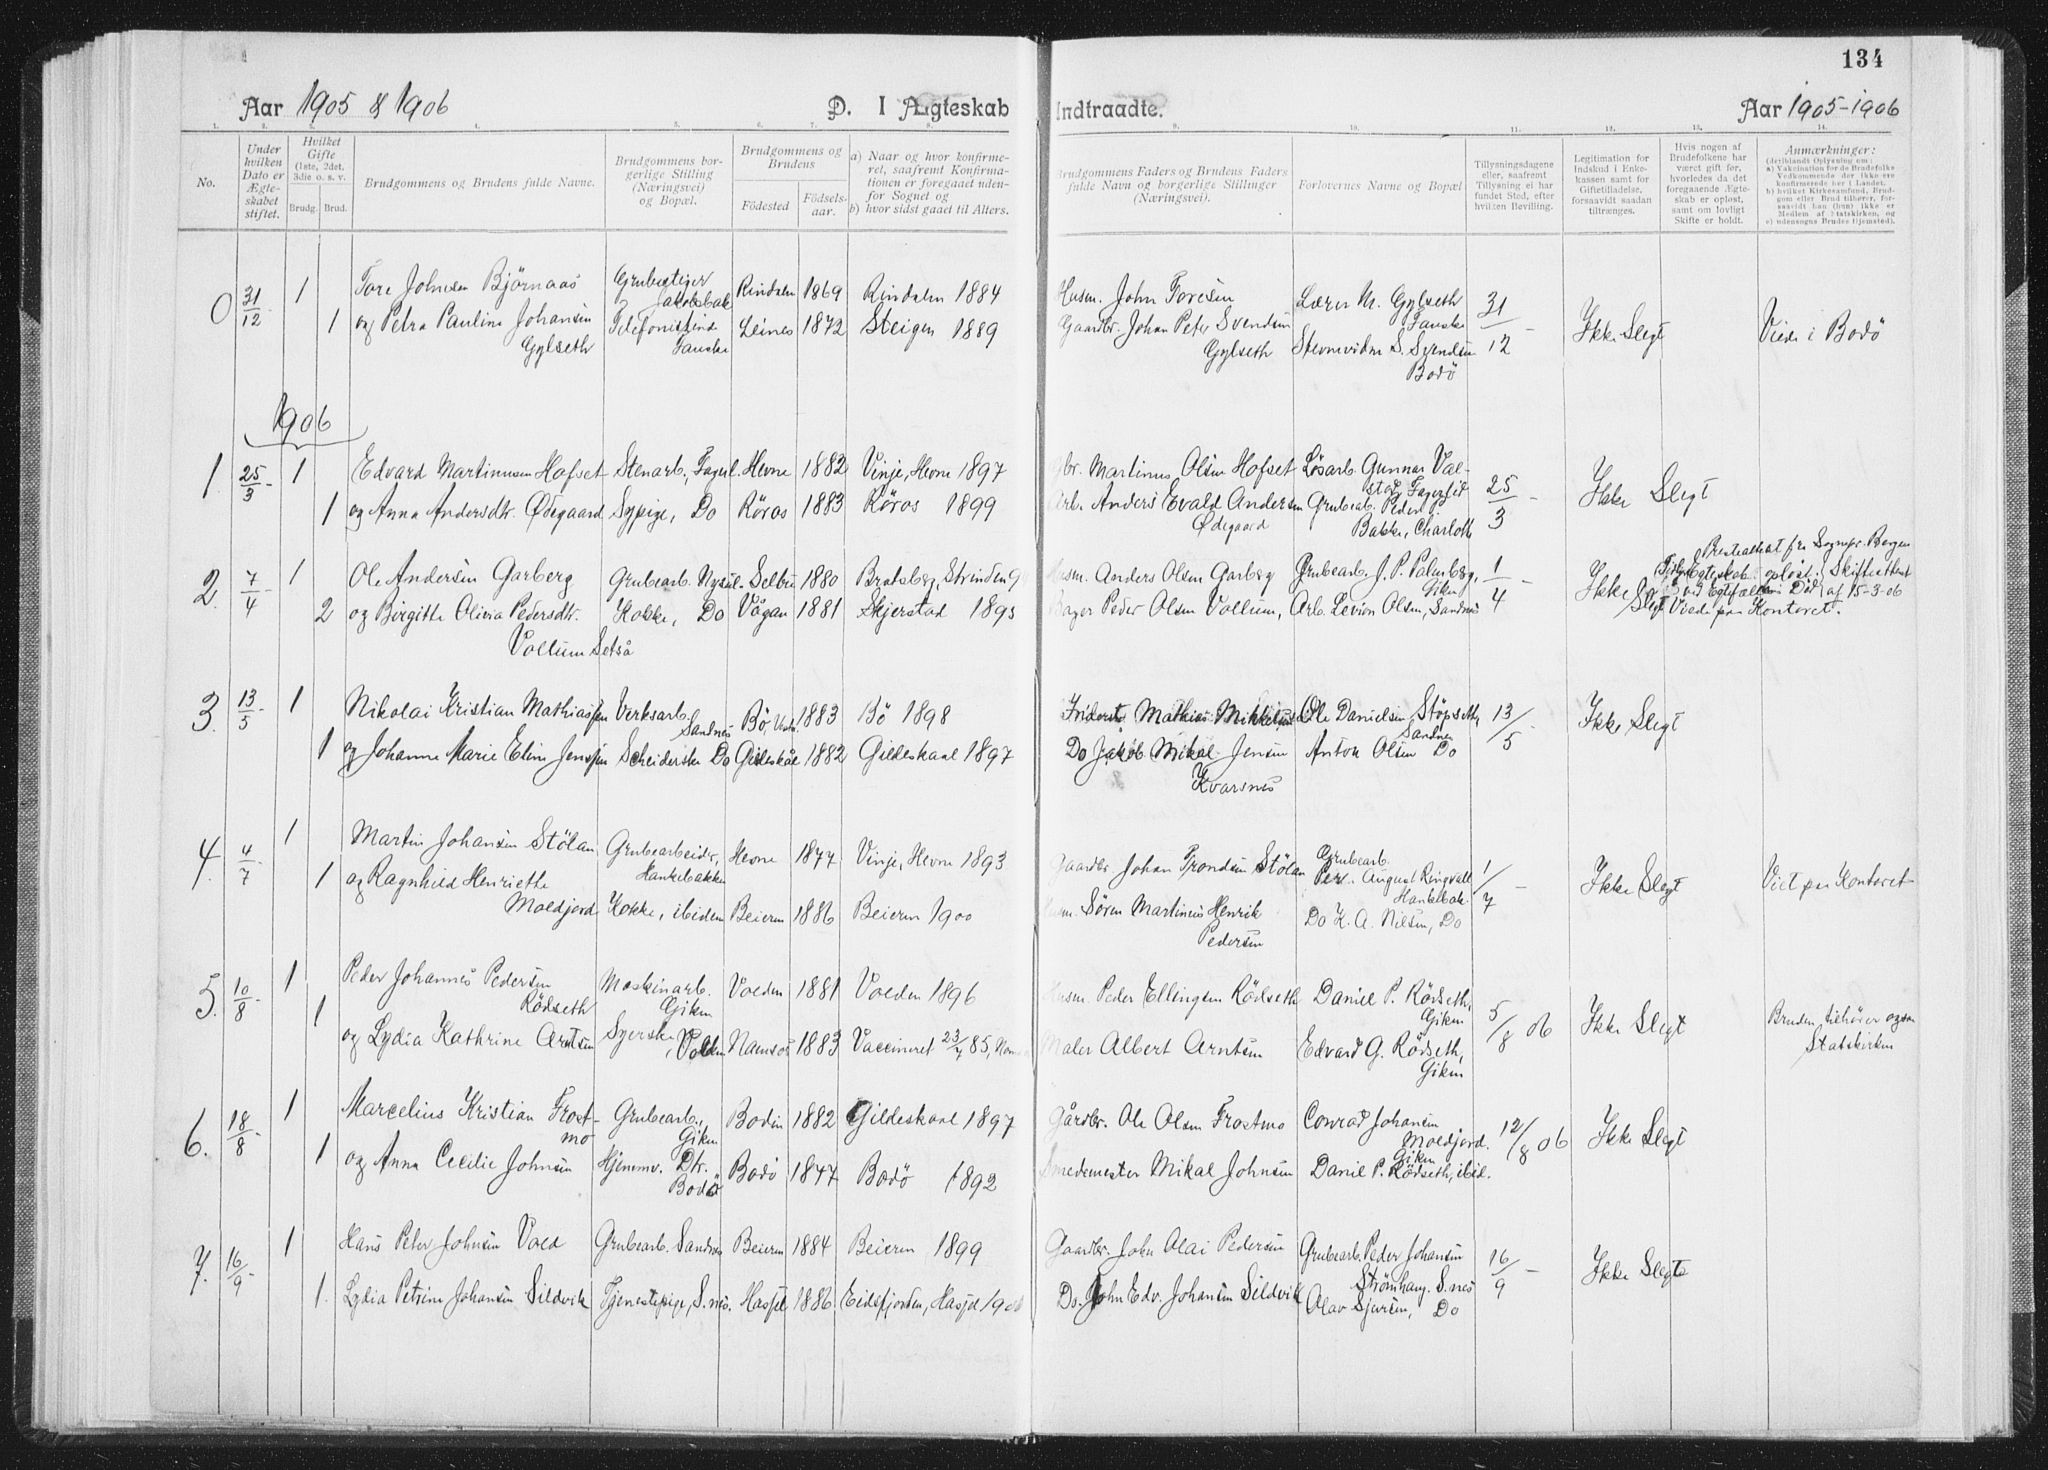 134
Aar 1905 & 1906 D. I Ægteskab Indtraadte. Aar 1905-1906
1. 2. 3. 4. 5. 6. 7. 8. 9. 10. 11. 12. 13. 14.
No.
Under hvilken Dato er Ægteskabet stiftet.
Hvilket Gifte (1ste, 2det, 3die o. s. v.
Brudg. Brud.
Brudgommens og Brudens fulde Navne.
Brudgommens borgerlige Stilling (Næringsvei) og Bopæl.
Brudgommens og Brudens
Födested Födselsaar.
a) Naar og hvor konfirmeret, saafremt Konfirmationen er foregaaet udenfor Sognet og
b) hvor sidst gaaet til Alters.
Brudgommens Faders og Brudens Faders fulde Navn og borgerlige Stillinger (Næringsvei).
Forlovernes Navne og Bopæl
Tillysningsdagene eller, saafremt Tillysning ei har fundet Sted, efter hvilken Bevilling.
Legitimation for Indskud i Enkekassen samt for Giftetilladelse, forsaavidt saadan tiltrænges.
Hvis nogen af Brudefolkene har været gift før, hvorledes da det foregaaende Ægteskab er opløst, samt om lovligt Skifte er holdt.
Anmærkninger:
(deriblandt Oplysning om:
a) Vakcination for de Brudefolks Vedkommende der ikke ere konfirmerede her i Landet.
b) hvilket Kirkesamfund, Brudgom eller Brud tilhører, forsaavidt han (hun) ikke er Medlem af Statskirken, og
c) udensogns Brudes Hjemsted).
0 31/12 1 Tore Johnsen Björnaas Grubestiger Jakobsbak Rindalen 1869 Rindalen 1884 Husm. John Toresen Lærer M. Gylseth Fauske 31/12 - Ikke Slegt Viede i Bodö
1 og Petra Pauline Johansen Gylseth Telefonistinde Fauske Leines 1872 Steigen 1889 Gaardbr. Johan Peter Svendsen Gylseth S. Svendsen Bodö
1906
1. 25/3 - 1 Edvard Martinusen Hofset Stenarb., Fagerl. Hevne 1882 Vinje, Hevne 1897 Martinus Olsen Hofset Lösarb. Gunnar Valstad, Fagerlid 25/3 - Ikke Slegt
1 og Anna Andersdtr. Ødegaard Sypige, Do Röros 1883 Röros 1899 Arb. Anders Evald Andersen Ødegaard Grubearb. Peder Bakke, Charlotth
2. 7/4 - 1 Ole Andersen Garberg Grubearb. Nysul. Selbu 1880 Bratsberg, Strinden Husm. Anders Olsen Garberg Grubearb. J. P. Palmberg, Giken 1/4 - Ikke Slegt
2 og Birgitte Olivia Pedersdtr. Vollum Setså Kokke, Do Vågan 1881 Skjerstad 1895 Bager Peder Olsen Vollum, Arb. Levion Olsen, Sandnes
Presteattest fra Sognepr. Bergen
Ægteskab opløst ved Egtefællens Død Skifteattest af 15-3-06
Viede paa Kontoret.
3. 13/5 - 1 Nikolai Kristian Mathiassen Verksarb. Sandnes Bö, 1883 Bö 1898 Mathias Mikkelsen Ole Danielsen Störseth, Sandnes 13/5 - Ikke Slegt
1 og Johanne Marie Eline Jenssen Scheiderske Do Gildeskål 1882 Gildeskaal 1897 Do Jakob Mikal Jensen Kvarsnes Anton Olsen Do
4. 4/7 1 Martin Johansen Stölan Grubearbeider, Hankebakken Hevne 1877 Vinje, Hevne 1893 Gaardbr Johan Trondsen Stölan Grubearb. Per August Ringvall Hankebak. 1/7 - Ikke Slegt Viet paa Kontoret
1 og Ragnhild Henriette Moldjord Kokke, ibidem Beieren 1886 Beieren 1900 Husm. Sören Martinius Henrik Pedersen Do K. A. Nilsen, Do
5. 10/8 - 1 Peder Johannes Pedersen Rödseth Maskinarb. Giken Volden 1881 Volden 1896 Husm. Peder Ellingsen Rödseth Daniel P. Rödseth, Giken 5/8 06 Ikke Slegt Bruden tilhörer ogsaa Statskirken
1 og Lydia Kathrine Arntsen Syerske, Volden Namsos 1883 Vaccineret 23/7 85, Maler Albert Arntsen Edvard G. Rödseth, Giken
6. 18/8 - 1 Marcelius Kristian Frostmo Grubearb., Giken Bodin 1882 Gildeskaal 1897 Gårdbr. Ole Olsen Frostmo Conrad Johansen Moldjord. Giken 12/8 06 Ikke Slegt
1 og Anna Cecilie Johnsen Hjemmev. Dtr. Bodö Bodö 1877 Bodö 1892 Smedemester Mikal Johnsen Daniel P. Rödseth, ibid.
7. 16/9 - 1 Hans Peter Johnsen Vold Grubearb. Sandnes Beieren 1884 Beieren 1899 Gaardbr. John Olai Pedersen Grubearb. Peder Johansen Strömhaug. S.nes 16/9 - Ikke Slegt
1. Lydia Petrine Johansen Sildvik Tjenestepige, S.nes. Hasjel 1886 Eidsfjorden, Hasjel Do. John Edv. Johansen Sildvik Olav Sjursen, Do